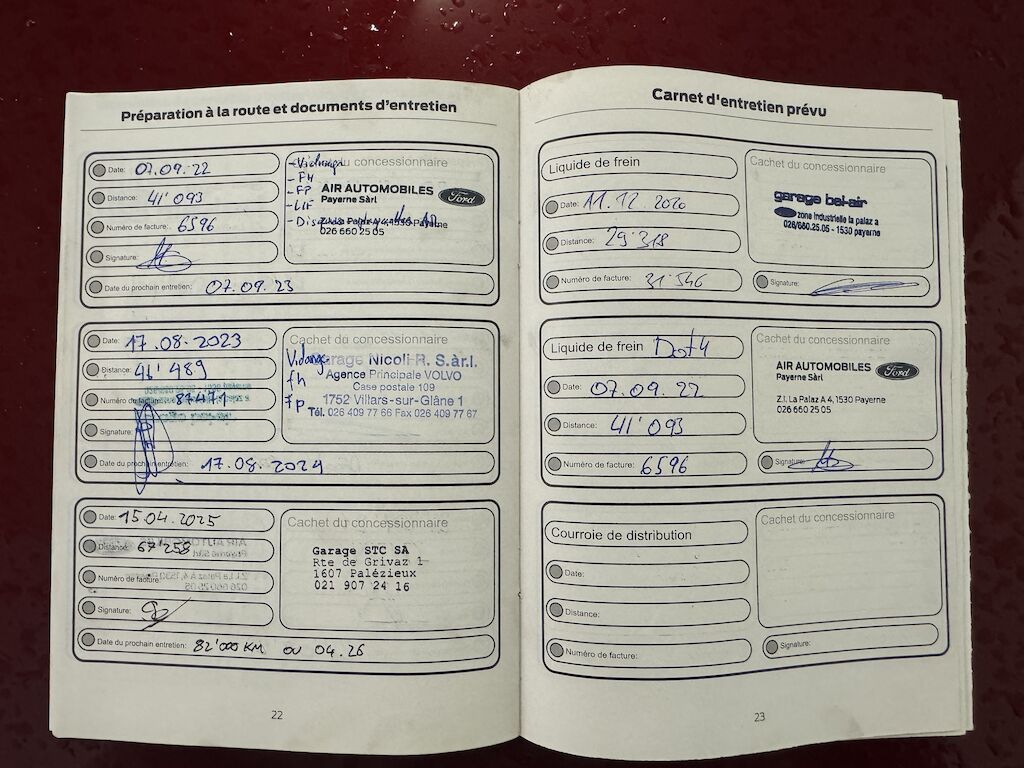 Préparation à la route et documents d'entretien
Date: 07.09.22
Distance: 41'093
Numéro de facture: 6596
Signature:
Date du prochain entretien: 07.09.23
Cachet du concessionnaire
- Vidange
- FH
- FP
- LIF
AIR AUTOMOBILES
Payerne Sàrl
Ford
Z.I. La Palaz A 4, 1530 Payerne
026 660 25 05
Date: 17.08.2023
Distance: 41'489
Numéro de facture: 87471
Signature:
Date du prochain entretien: 17.08.2024
Cachet du concessionnaire
Vidange
fh
fp
Garage Nicoli R. S.àr.l.
Agence Principale VOLVO
Case postale 109
1752 Villars-sur-Glâne 1
Tél. 026 409 77 66 Fax 026 409 77 67
Date: 15.04.2025
Distance: 67'258
Numéro de facture:
Signature:
Date du prochain entretien: 82'000 KM OU 04.26
Cachet du concessionnaire
Garage STC SA
Rte de Grivaz 1
1607 Palézieux
021 907 24 16
22
Carnet d'entretien prévu
Liquide de frein
Date: 11.12.2020
Distance: 29'318
Numéro de facture: 31'546
Cachet du concessionnaire
garage bel-air
zone industrielle la palaz a
026/660.25.05 - 1530 payerne
Signature:
Liquide de frein Dot4
Date: 07.09.22
Distance: 41'093
Numéro de facture: 6596
Cachet du concessionnaire
AIR AUTOMOBILES
Payerne Sàrl
Ford
Z.I. La Palaz A 4, 1530 Payerne
026 660 25 05
Signature:
Courroie de distribution
Date:
Distance:
Numéro de facture:
Cachet du concessionnaire
Signature:
23